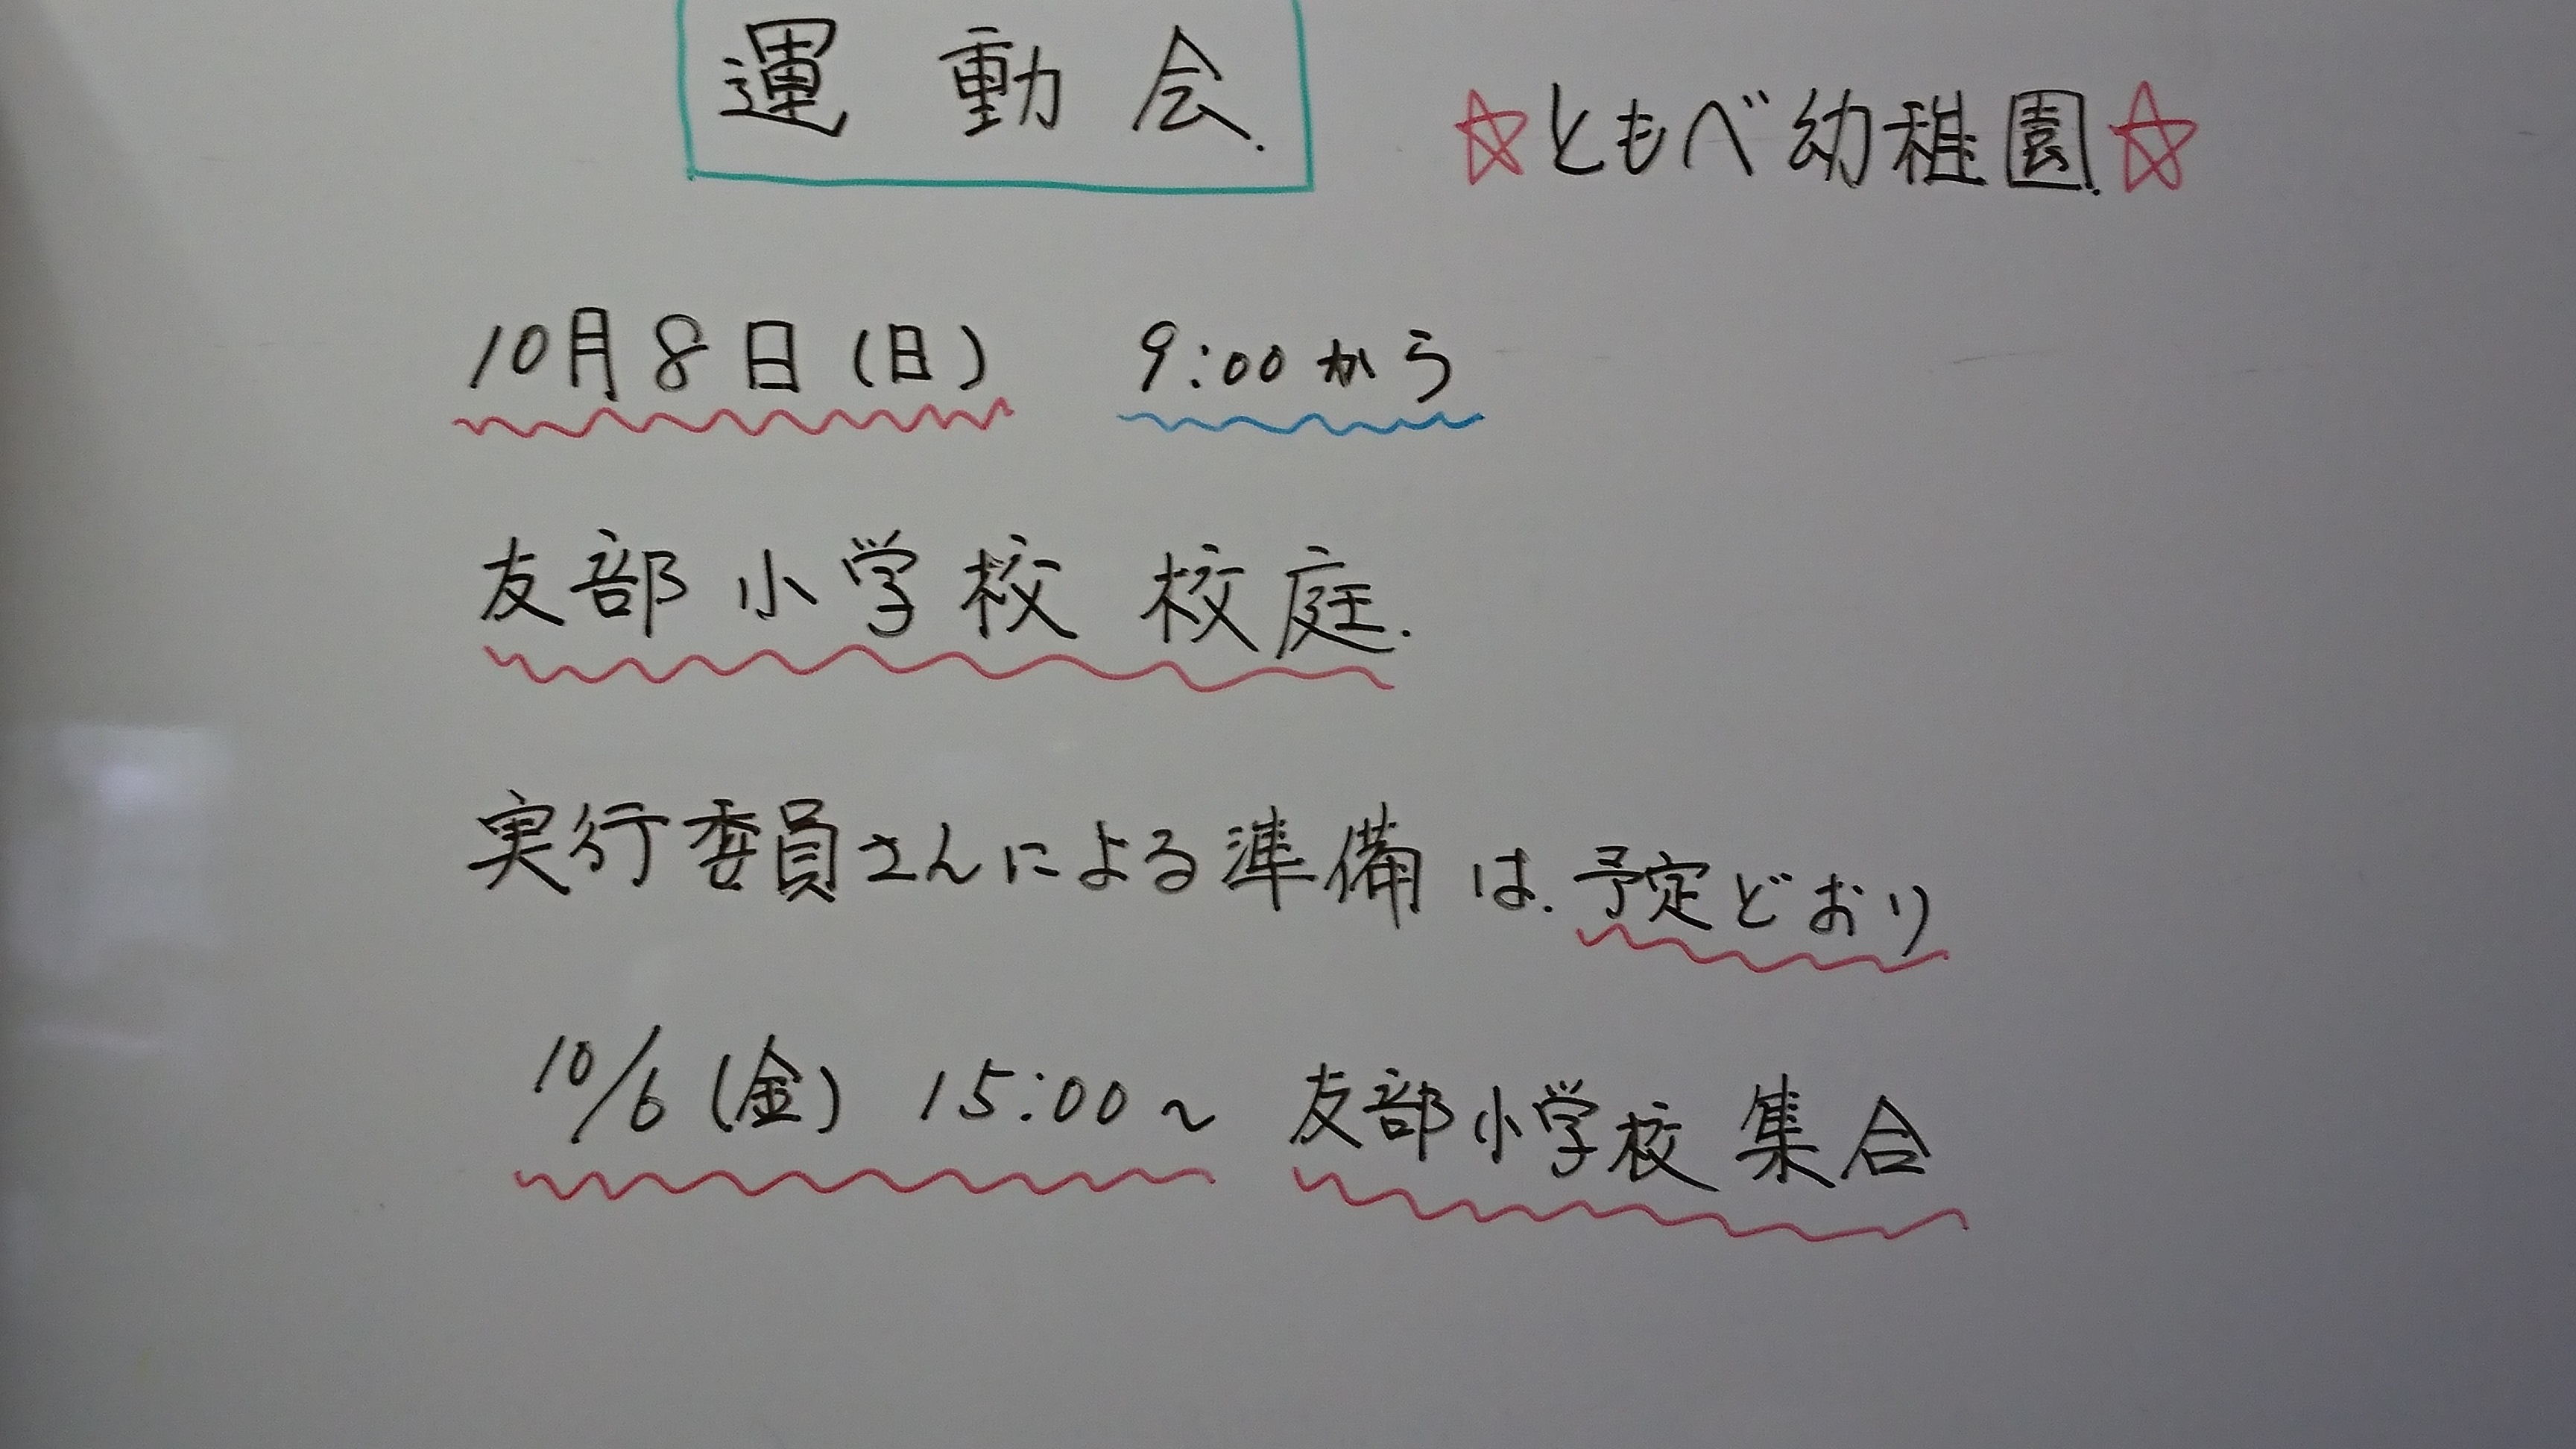 運動会.
☆ともべ幼稚園.☆
10月8日(日) 9:00から
友部小学校 校庭.
実行委員さんによる準備は.予定どおり
10/6(金) 15:00~ 友部小学校 集合